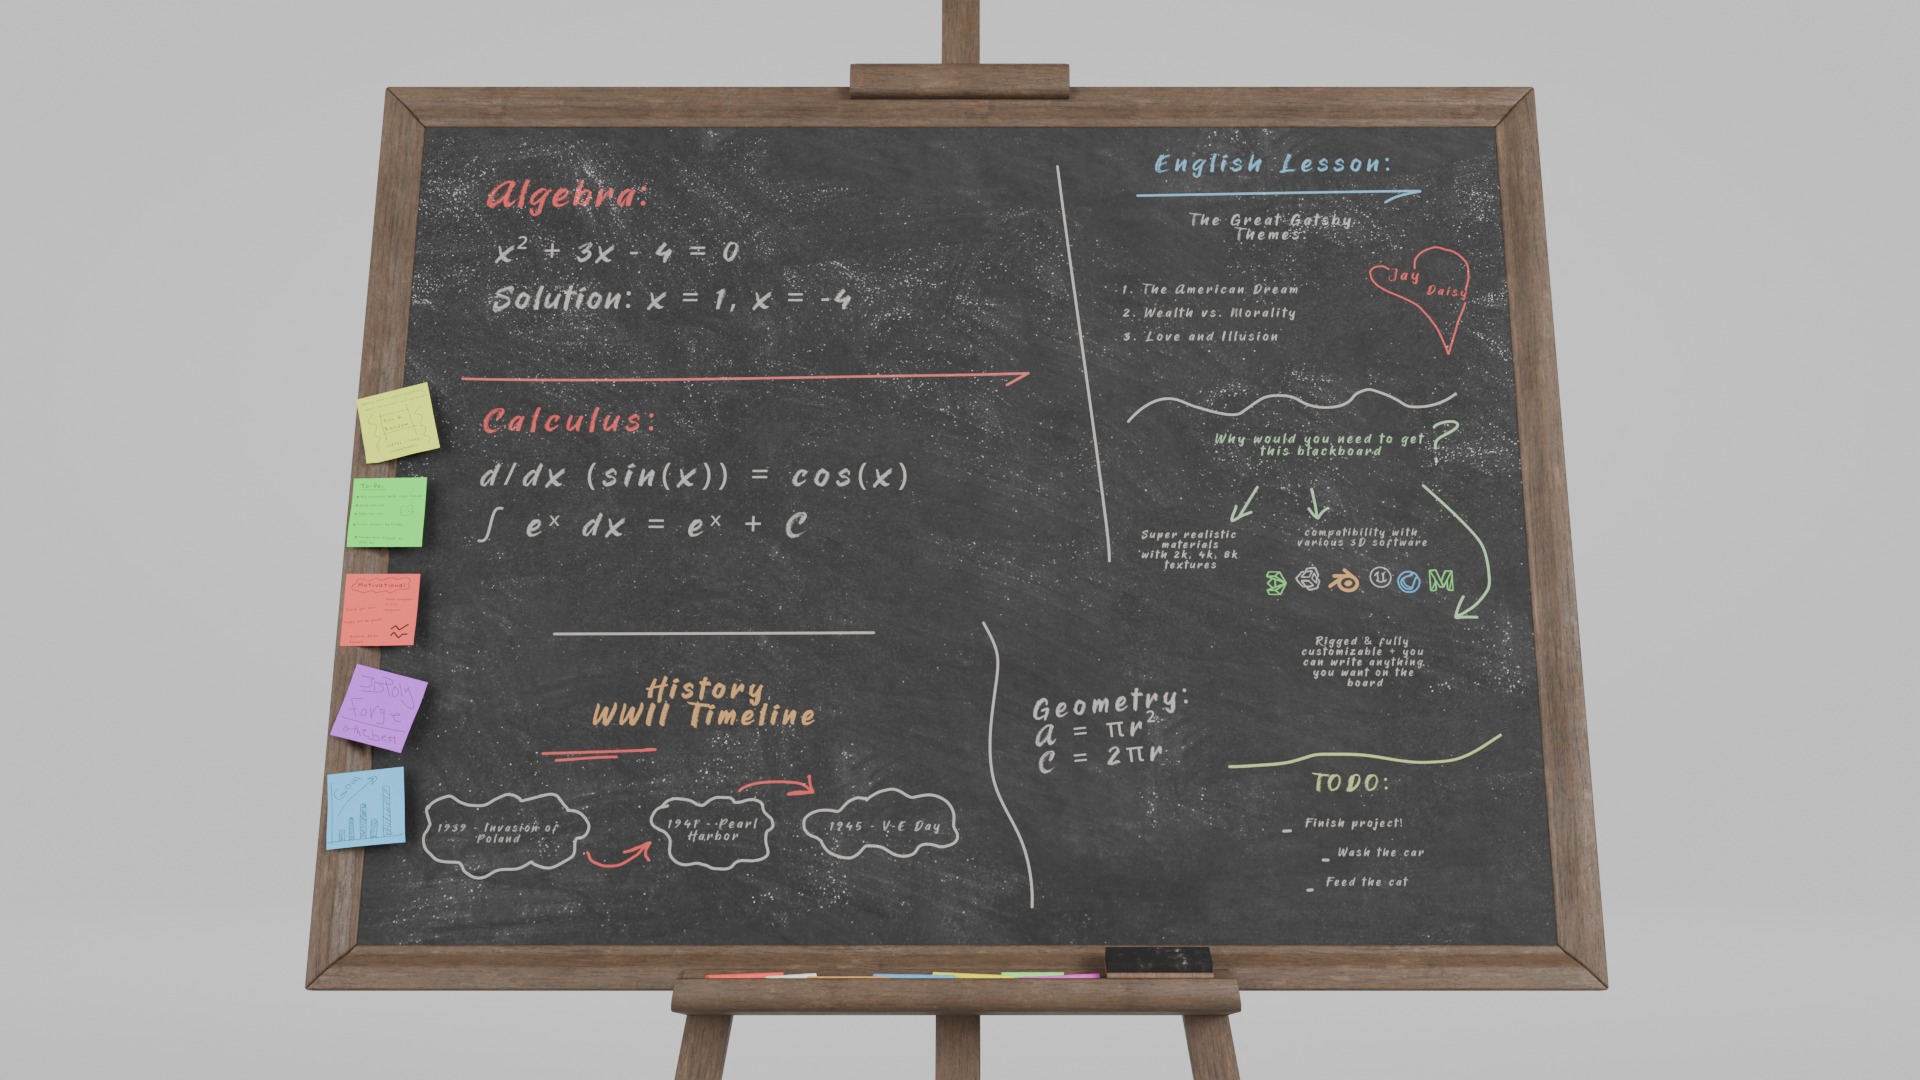 Algebra:
x² + 3x - 4 = 0
Solution: x = 1, x = -4
Calculus:
d/dx (sin(x)) = cos(x)
∫ eˣ dx = eˣ + C
History
WWII Timeline
1939 - Invasion of
Poland
1941 - Pearl
Harbor
1945 - V-E Day
English Lesson:
The Great Gatsby
Themes:
1. The American Dream
2. Wealth vs. Morality
3. Love and Illusion
Jay
Daisy
Why would you need to get
this blackboard
?
Super realistic
materials
with 2k, 4k, 8k
textures
compatibility with
various 3D software
Rigged & fully
customizable + you
can write anything
you want on the
board
Geometry:
A = πr²
C = 2πr
TODO:
- Finish project!
- Wash the car
- Feed the cat
To-Do:
Motivational
3DPoly
Forge
is the best
Goals